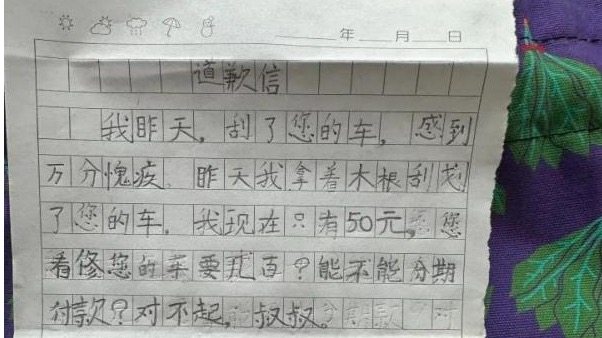 年 月 日
道歉信
我昨天，刮了您的车，感到
万分愧疚．昨天我拿着木根刮划
了您的车．我现在只有50元。您
看修您的车要几百？能不能分期
付款？对不起，叔叔。